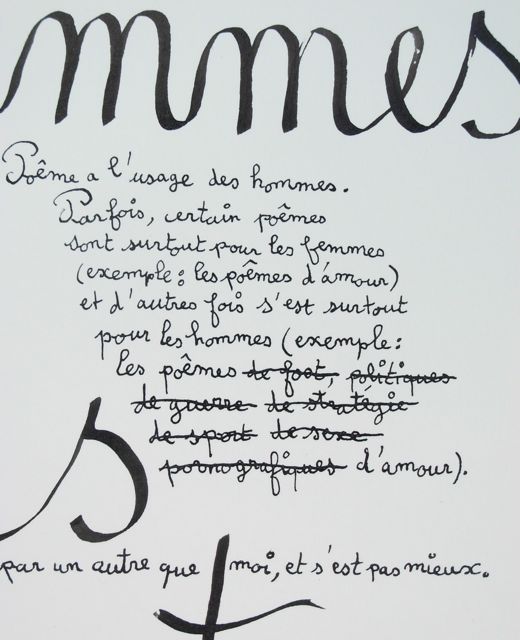 mmes
Poême a l'usage des hommes.
Parfois, certain poêmes
sont surtout pour les femmes
(exemple : les poêmes d'amour)
et d'autres fois s'est surtout
pour les hommes (exemple :
les poêmes de foot, politiques
de guerre de stratégie
de sport de sexe
pornografiques d'amour).
s
par un autre que moi, et s'est pas mieux.
t